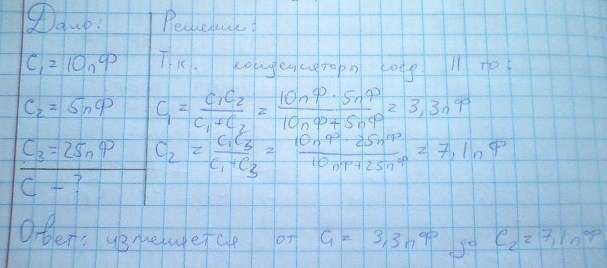 Дано:
C₁ = 10пФ
C₂ = 5пФ
C₃ = 25пФ
C - ?
Решение:
Т.к. конденсаторы соед. || то:
C₁ = C₁C₂ / C₁+C₂ = 10пФ · 5пФ / 10пФ+5пФ = 3,3пФ
C₂ = C₁C₃ / C₁+C₃ = 10пФ · 25пФ / 10пФ+25пФ = 7,1пФ
Ответ: изменяется от C₁ = 3,3пФ до C₂ = 7,1пФ